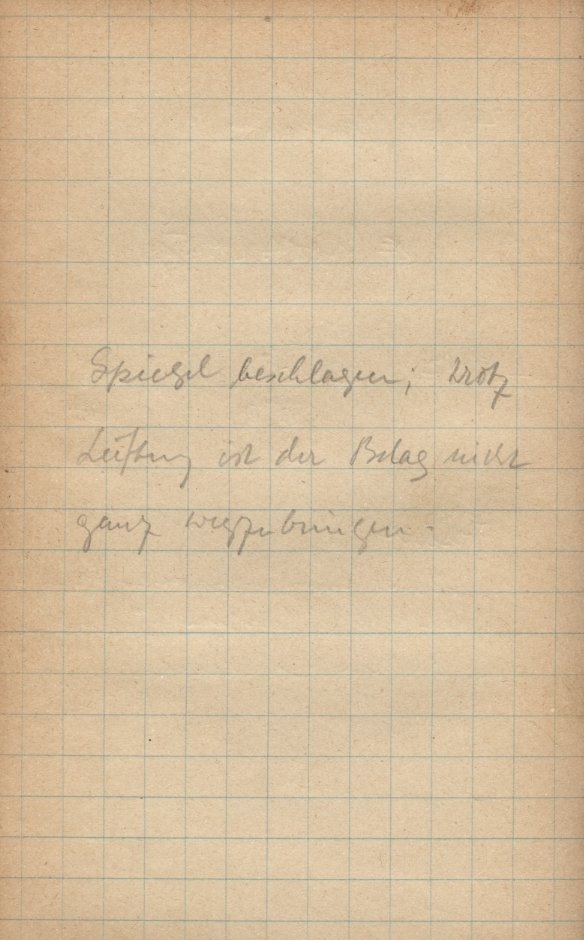 Spiegel beschlagen; trotz
Lüftung ist der Belag nicht
ganz wegzubringen.